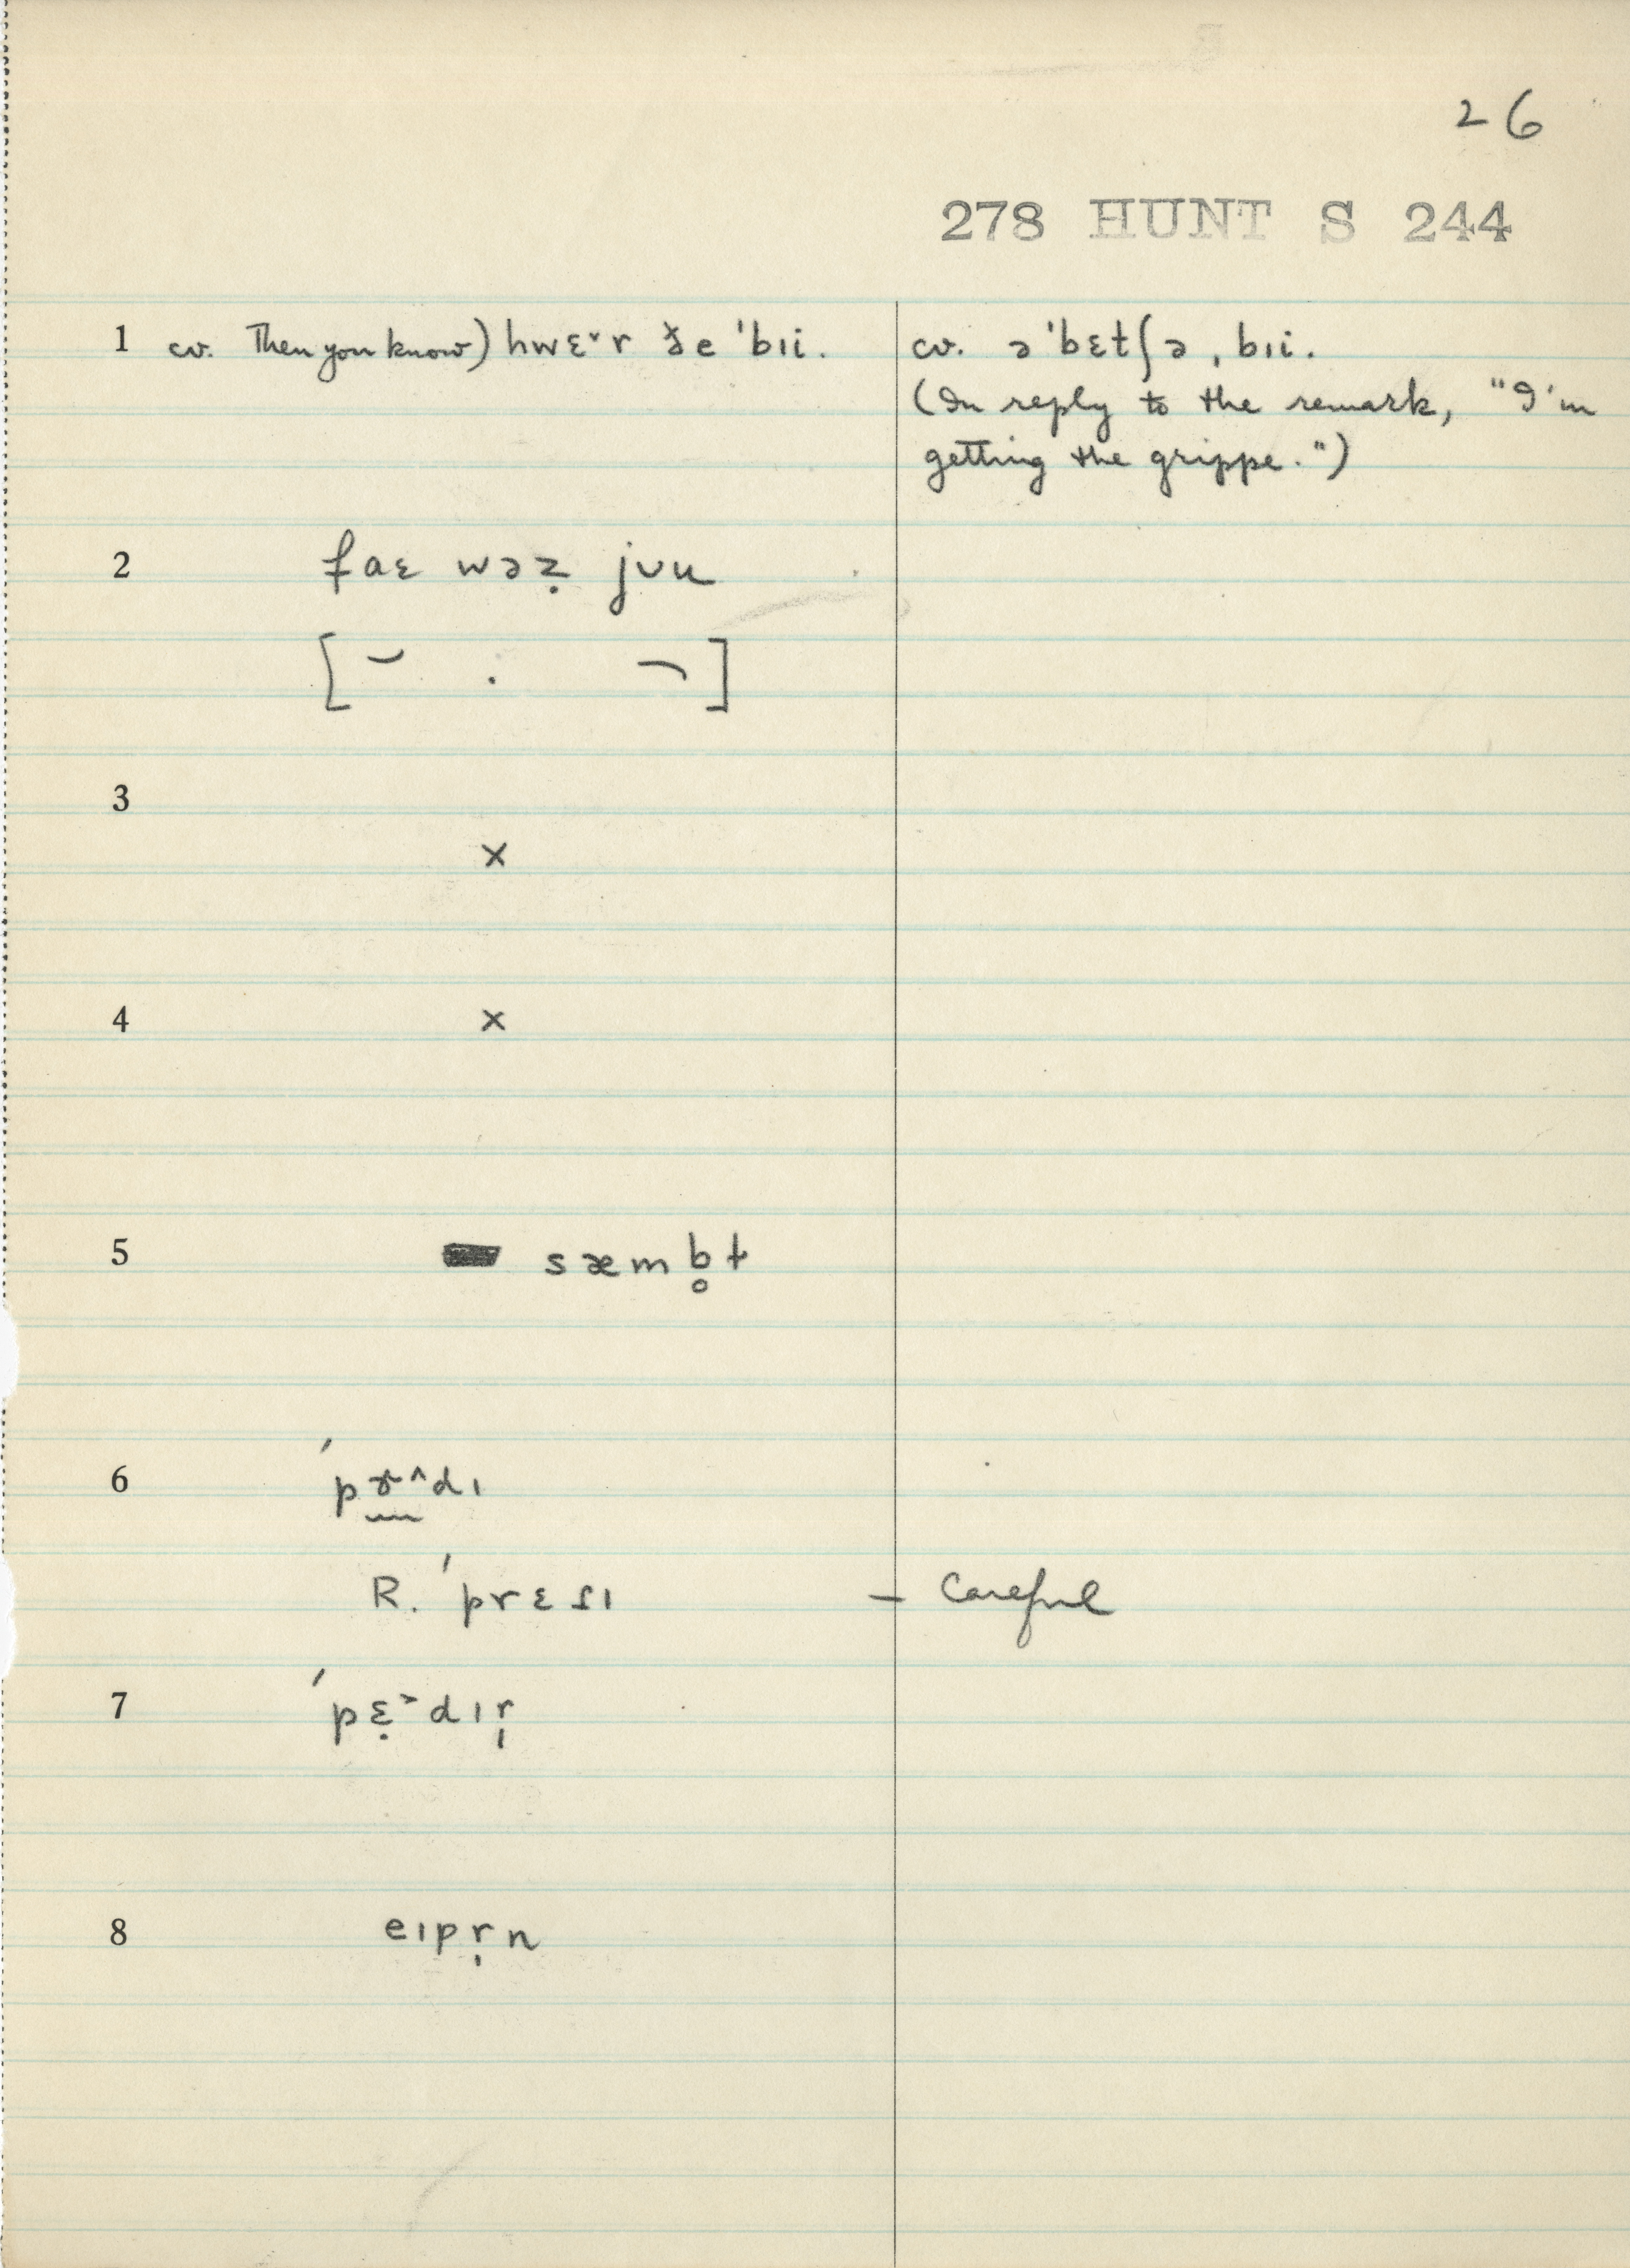 26
278 HUNT S 244
1 cv. Then you know) hwɛ˅r ðe ˈbɪi. cv. əˈbɛtʃə ˌbɪi.
(In reply to the remark, "I'm
getting the grippe.")
2 faɛ wəẓ jʊu
[ ]
3
×
4 ×
5 sæmb̥t
6 ˈpɤ˄dɪ
R. ˈprɛsɪ – Careful
7 ˈpɛ̣˃dɪr̩
8 eɪpr̩n